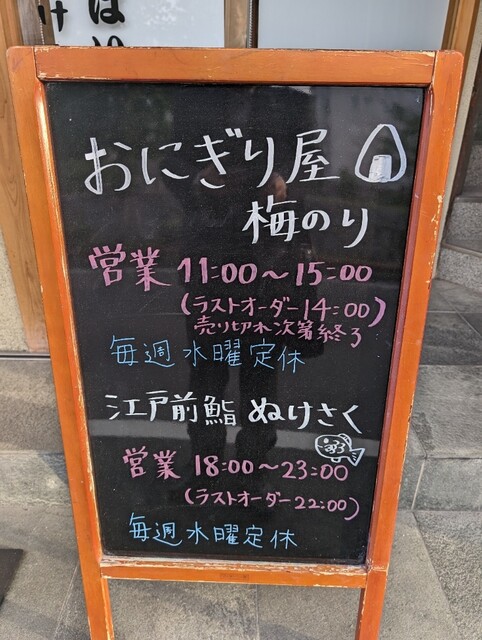 おにぎり屋
梅のり
営業 11:00～15:00
(ラストオーダー14:00)
売り切れ次第終了
毎週水曜定休
江戸前鮨 ぬけさく
営業 18:00～23:00
(ラストオーダー22:00)
毎週水曜定休